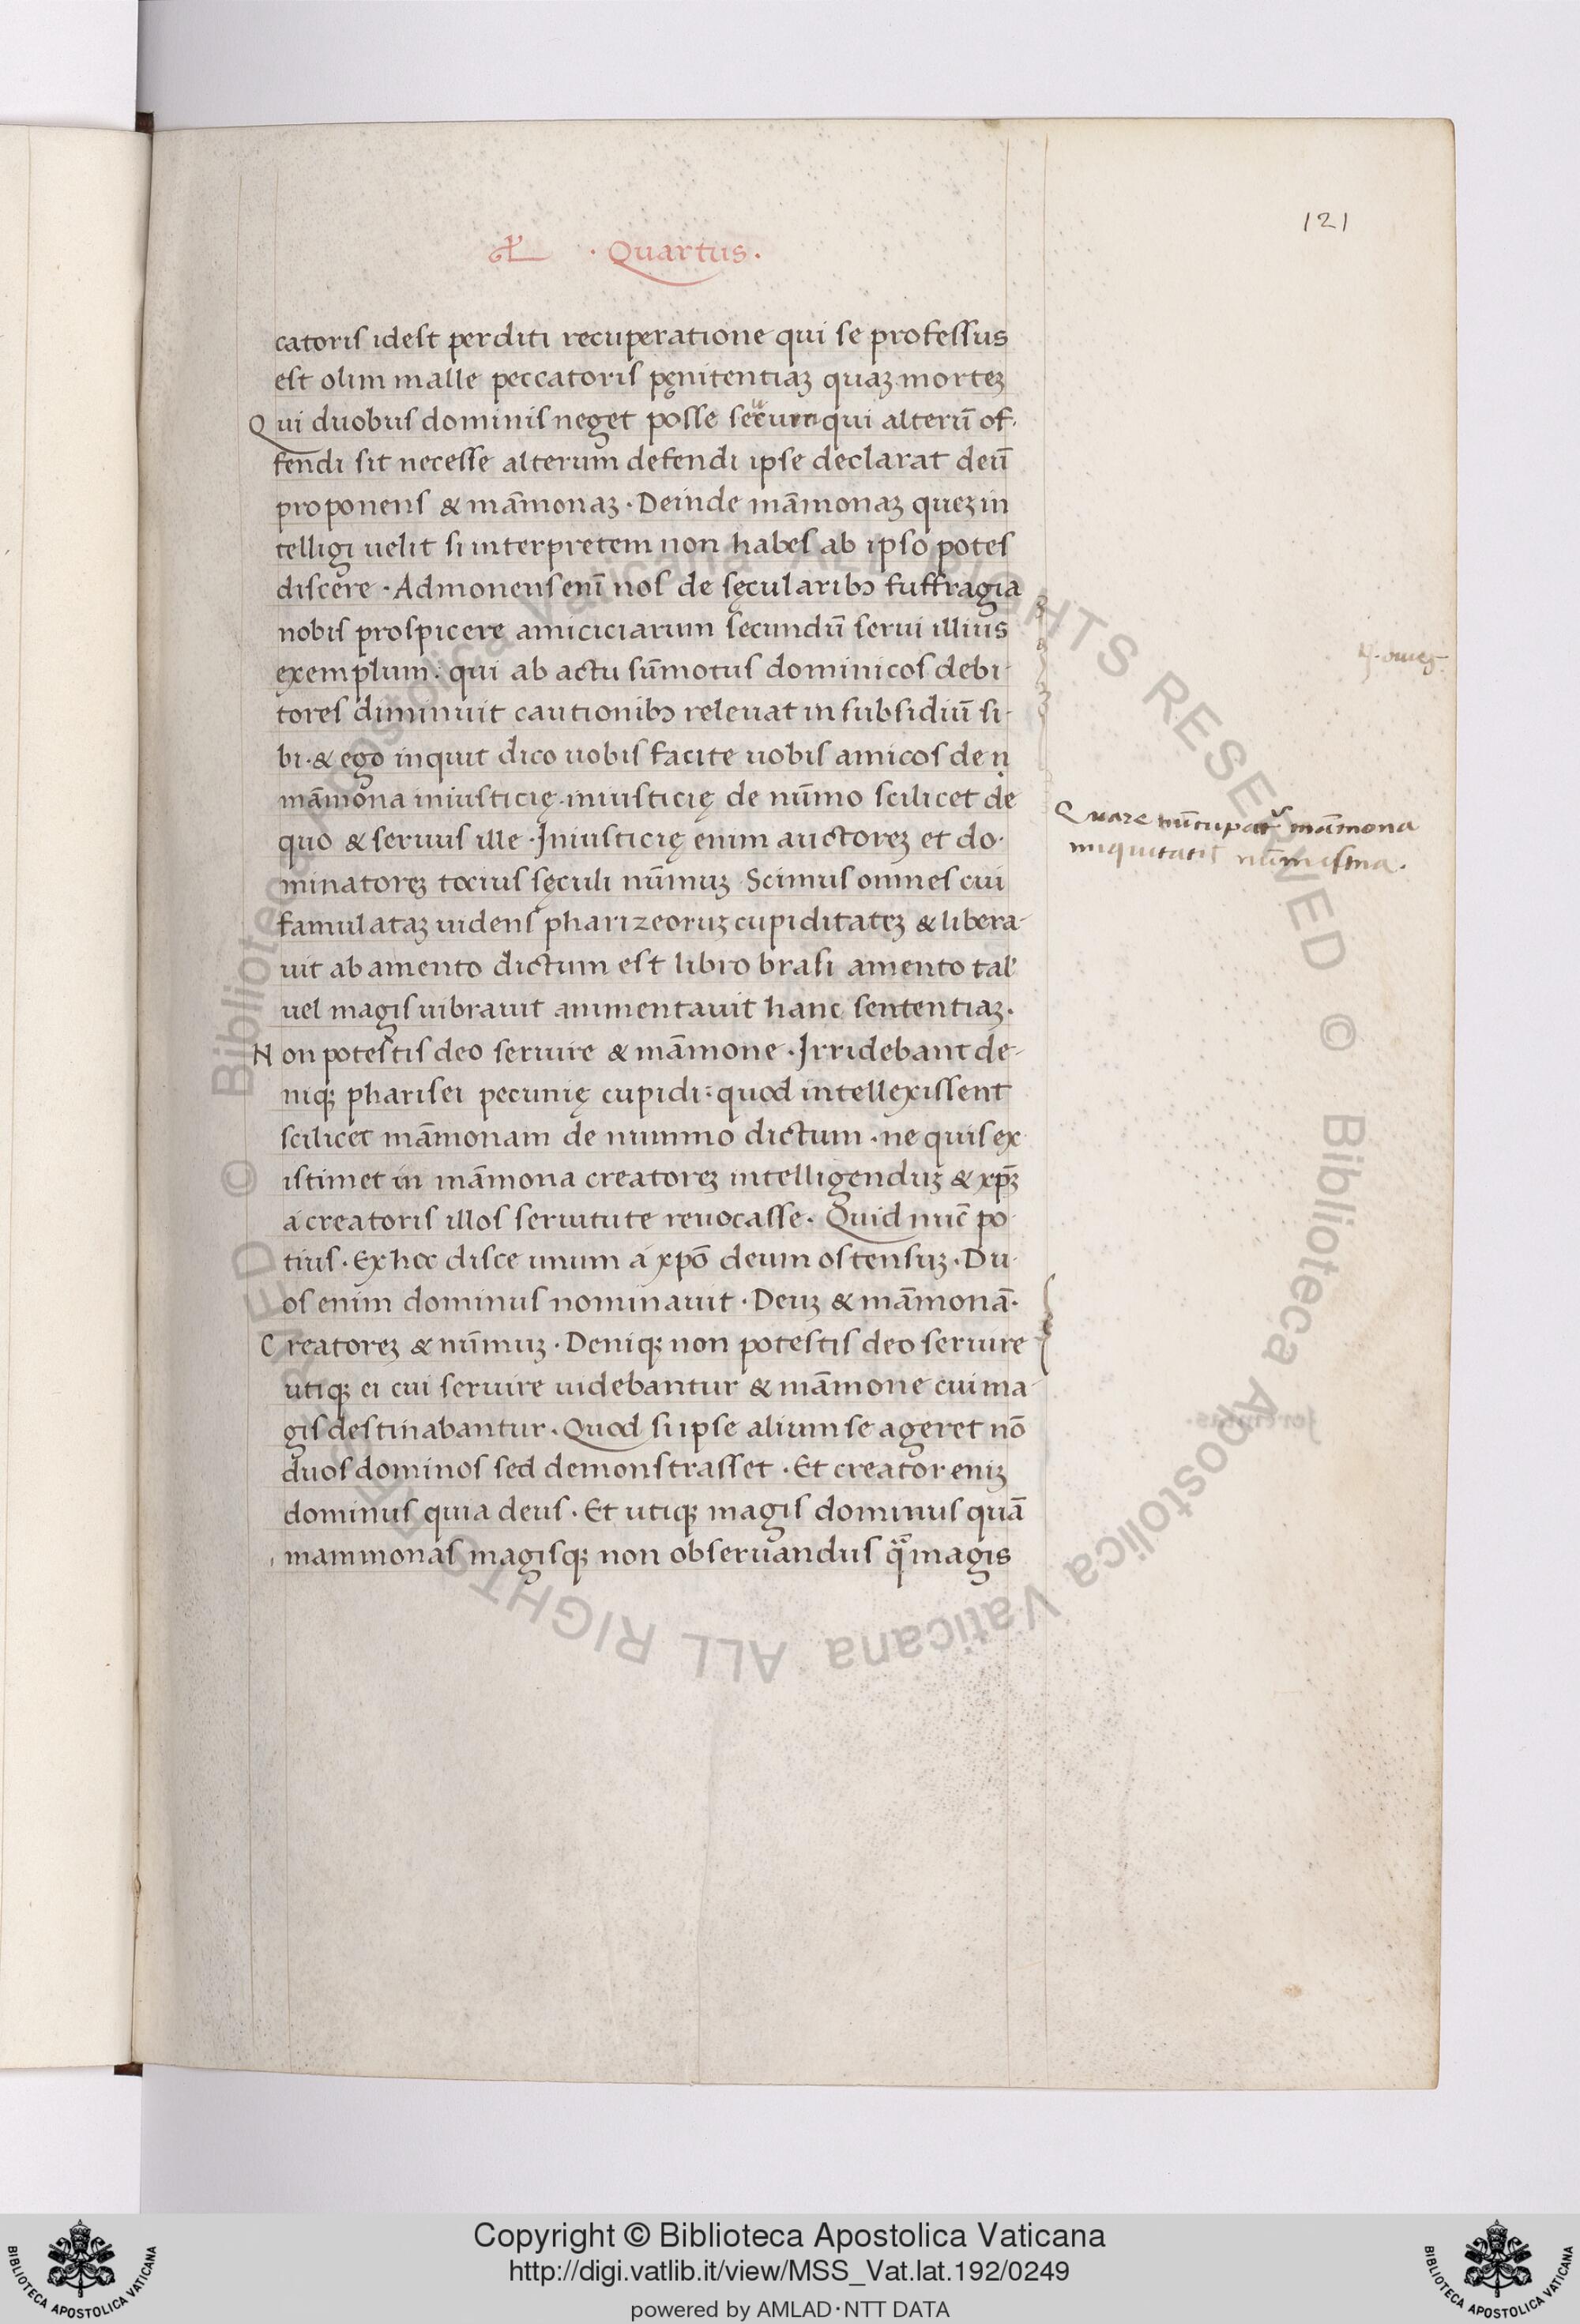 121
· Quartus ·
catoris idest perditi recuperatione qui se professus
est olim malle peccatoris pęnitentiaꝫ quaꝫ morteꝫ
Qui duobus dominis neget posse qui alterū of-
fendi sit necesse alterum defendi ipse declarat deū
proponens & māmonaꝫ · Deinde māmonaꝫ queꝫ in
telligi uelit si interpretem non habes ab ipso potes
discere · Admonens enī nos de sęcularibꝫ suffragia
nobis prospicere amiciciarum secundū serui illius
exemplum : qui ab actu sūmotus dominicos debi-
tores diminuit cautionibꝫ releuat in subsidiū si-
bi · & ego inquit dico uobis facite uobis amicos de ṇ
māmona iniusticię · iniusticię de nūmo scilicet de
quo & seruus ille · Iniusticię enim auctoreꝫ et do-
minatoreꝫ tocius sęculi nūmuꝫ Scimus omnes cui
famulataꝫ uidens pharizeoruꝫ cupiditateꝫ & libera-
uit ab amento dictum est libro brasi amento tal'
uel magis uibrauit ammentauit hanc sententiaꝫ ·
Non potestis deo seruire & māmone · Irridebant de-
niqꝫ pharisei pecunię cupidi : quod intellexissent
scilicet māmonam de nummo dictum · ne quis ex
istimet in māmona creatoreꝫ intelligenduꝫ & xp̄ꝫ
a creatoris illos seruitute reuocasse · Quid nūc po
tius · Ex hoc disce unum a xp̄o deum ostensuꝫ · Du-
os enim dominus nominauit · Deuꝫ & māmonā ·
Creatoreꝫ & nūmuꝫ · Deniqꝫ non potestis deo seruire
utiqꝫ ei cui seruire uidebantur & māmone cui ma-
gis destinabantur · Quod si ipse alium se ageret nō
duos dominos sed demonstrasset · Et creator eniꝫ
dominus quia deus · Et utiqꝫ magis dominus quā
mammonas magisqꝫ non obseruandus q̄ magis
Quare nūcupat᷑ māmona
iniquitatis nūmisma ·
© Biblioteca Apostolica Vaticana ALL RIGHTS RESERVED © Biblioteca Apostolica Vaticana ALL RIGHTS RESERVED
Copyright © Biblioteca Apostolica Vaticana
http://digi.vatlib.it/view/MSS_Vat.lat.192/0249
powered by AMLAD·NTT DATA
BIBLIOTECA APOSTOLICA VATICANA
BIBLIOTECA APOSTOLICA VATICANA